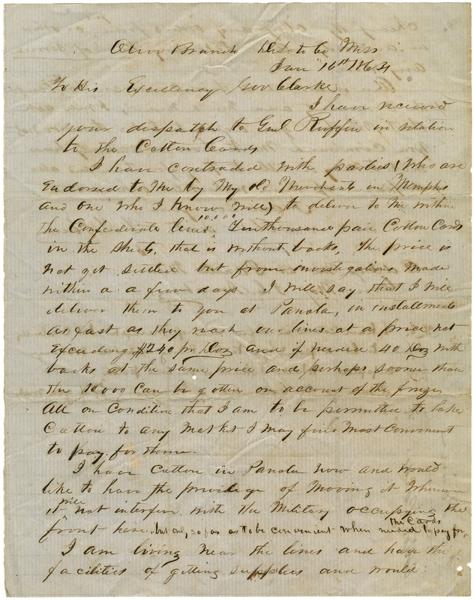 Olive Branch De Soto Co Miss
Jan 16th 1864
To His Excellency Gov Clarke
I have received
your dispatch to Genl Ruffin in relation
to the Cotton Cards
I have contracted with parties (who are
Endorsed to me by my old Merchants in Memphis
and one who I know well) to deliver to me within
the Confederate lines 10,000 Ten thousand pair Cotton Cards
in the Sheets, that is without backs, The price is
not yet settled but from investigations made
within a a few days I will say that I will
deliver them to you at Panola, in installments
as fast as they reach our lines at a price not
Exceeding $240 pr Doz and if 40 Doz with
backs at the same price and perhaps sooner than
the 10.000 Can be gotten on account of the freeze
All on Condition that I am to be permitted to take
Cotton to any market I may find most Convenient
to pay for them.
I have Cotton in Panola now and would
like to have the privilege of moving it when
it will not interfere with the Military occupying the
front here, but only so far as to be convenient when needed to pay for
The Cards
I am living near the lines and have the
facilities of getting supplies and would